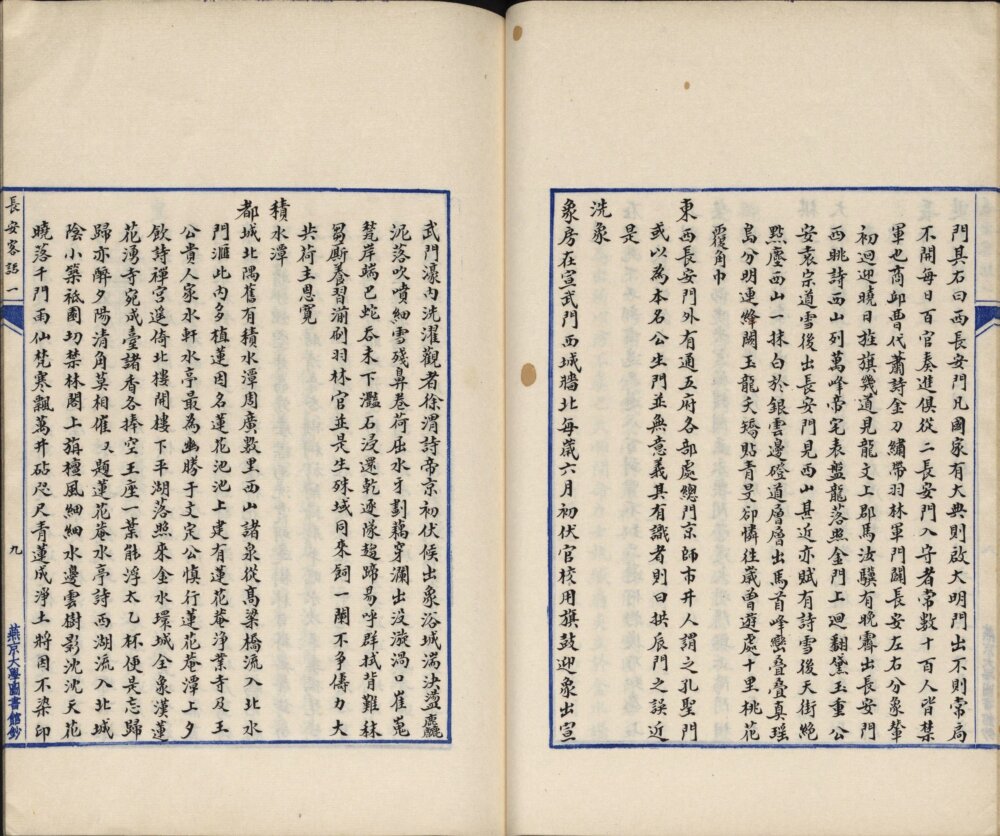 門其右曰西長安門凡國家有大典則啟大明門出不則常扃
不開每日百官奏進俱從二長安門入守者常數十百人皆禁
軍也商邱曹代蕭詩金刀繡帶羽林軍門闢長安左右分象輦
初迴迎曉日旌旗幾道見龍文上郡馬汝驥有晚霽出長安門
西眺詩西山列萬峰帝宅表盤龍落照金門上迴翻黛玉重公
安袁宗道雪後出長安門見西山甚近亦賦有詩雪後天街絶
點塵西山一抹白於銀雲邊磴道層層出馬首峰巒疊疊真瑶
島分明連絳闕玉龍夭矯貼青旻卻憐往歲曾遊處十里桃花
覆角巾
東西長安門外有通五府各部處總門京師市井人謂之孔聖門
或以為本名公生門並無意義具有識者則曰拱辰門之誤近
是
洗象
象房在宣武門西城牆北每歲六月初伏官校用旗鼓迎象出宣
武門濠內洗濯觀者徐渭詩帝京初伏候出象浴城湍決盪麤
泥落吹噴細雪殘鼻卷荷屈水牙劃藕穿瀾出沒漩渦口崔嵬
芰岸端巴蛇吞未下灩石浸還乾逐隊趨蹄易呼群拭背難秣
芻厮養習湔刷羽林官並是生殊域同來飼一闌不爭儔力大
共荷主恩寬
積水潭
都城北隅舊有積水潭周廣數里西山諸泉從高梁橋流入北水
門滙此內多植蓮因名蓮花池池上建有蓮花菴淨業寺及王
公貴人家水軒水亭最為幽勝于文定公慎行蓮花菴潭上夕
飲詩禪宮遥倚北樓開樓下平湖落照來金水環城全象漢蓮
花湧寺宛成臺諸香各捧空王座一葉能浮太乙杯便是忘歸
歸亦醉夕陽清角莫相催又題蓮花菴水亭詩西湖流入北城
陰小築祇園切禁林閣上旃檀風細細水邊雲樹影沈沈天花
曉落千門雨仙梵寒飄萬井砧咫尺青蓮成淨土將因不染印
長安客話一
九
燕京大學圖書館鈔